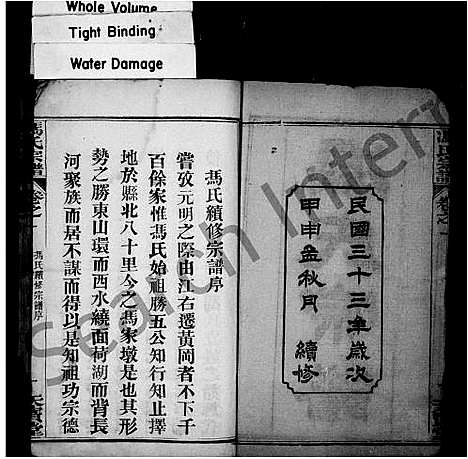 Whole Volume
Tight Binding
Water Damage
民國三十三年歲次
甲申孟秋月 續修
馮氏續修宗譜序
嘗攷元明之際由江右遷黃岡者不下千
百餘家惟馮氏始祖勝五公知行知止擇
地於縣北八十里今之馮家墩是也其形
勢之勝東山環而西水繞面荷湖而背長
河聚族而居不謀而得以是知祖功宗德
馮氏宗譜
卷之一
馮氏續修宗譜序
一
Search Intern